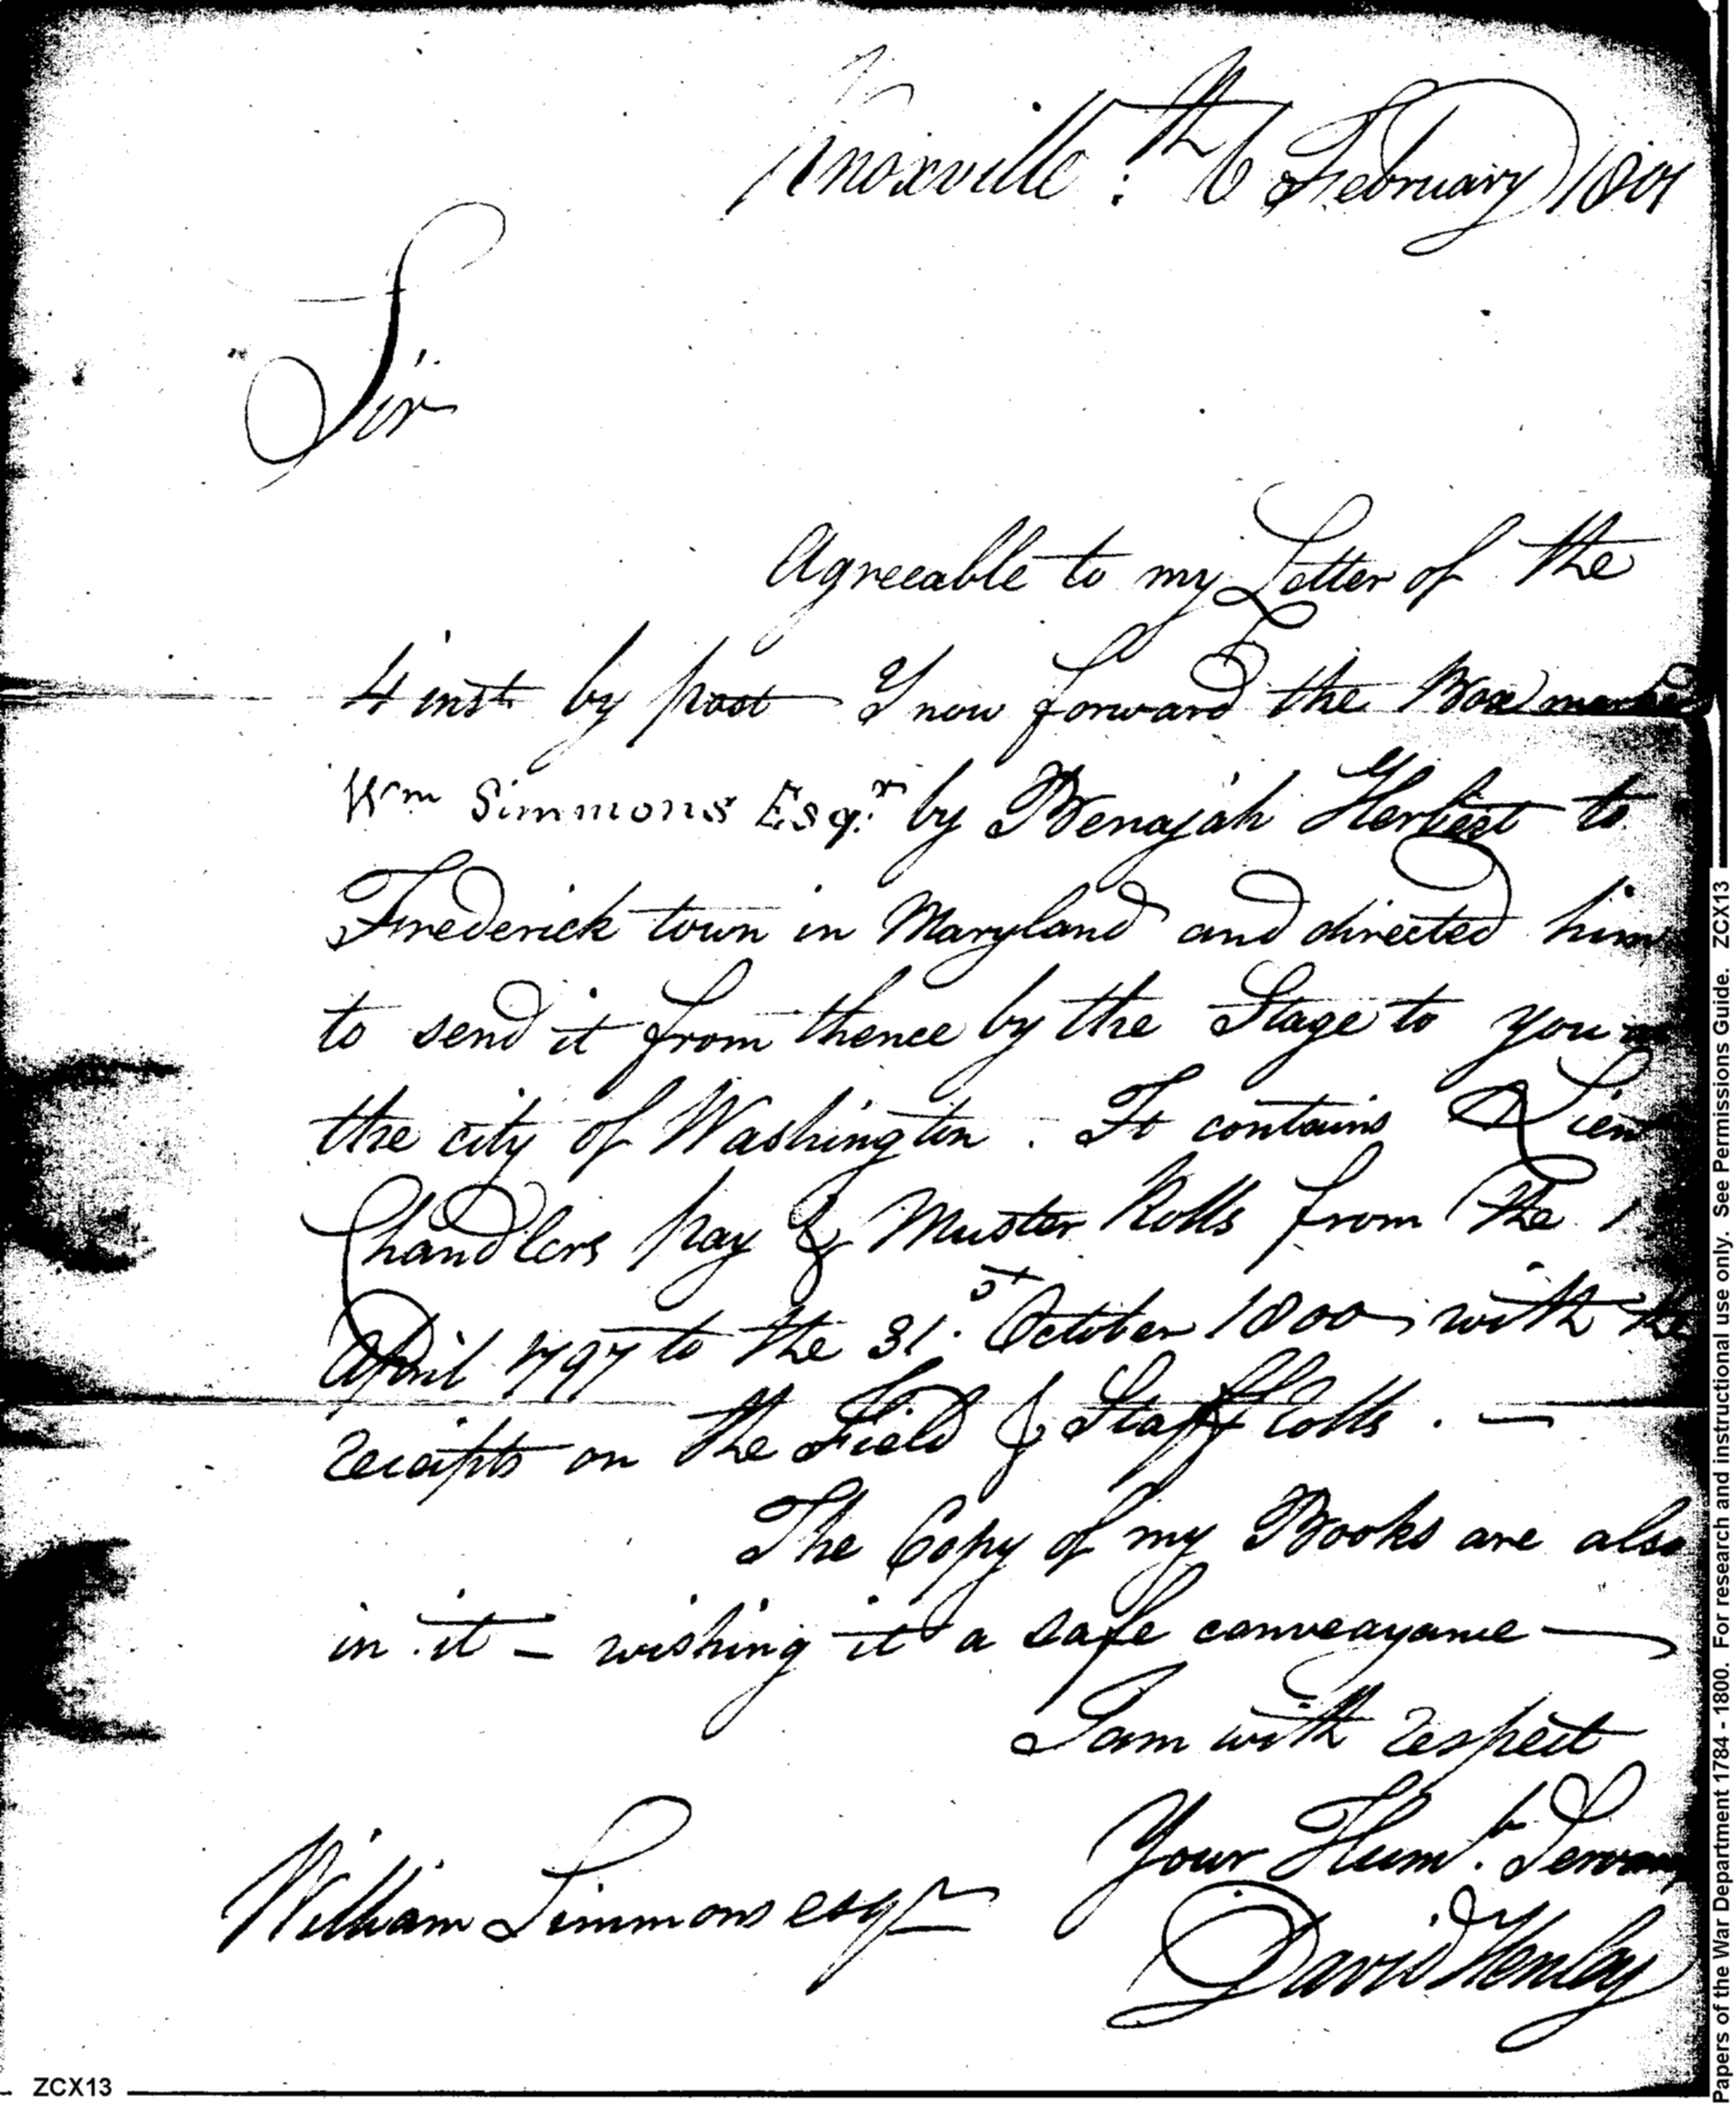 Knoxville: 6th February 1801
Sir
Agreeable to my Letter of the
4 inst. by post I now forward the Box marked
Wm Simmons Esqr. by Benajah Herbest to
Frederick town in Maryland and directed him
to send it from thence by the Stage to you
the city of Washington. It contains Lieu
Chandlers pay & Muster Rolls from the 1
April 1797 to the 31st. October 1800, with the
receipts on the Field & Staff rolls. —
The Copy of my Books are also
in it — wishing it a safe conveayance —
I am with respect
Your Humb. Servan
William Simmons esqr
David Henley
ZCX13
Papers of the War Department 1784 - 1800. For research and instructional use only. See Permissions Guide. ZCX13